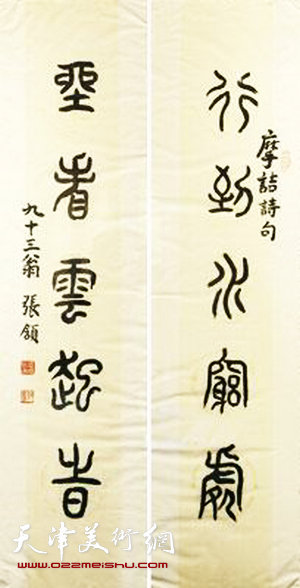 行到水窮處
摩詰詩句
坐看雲起旹
九十三翁 張頷
天津美術網
www.022meishu.com